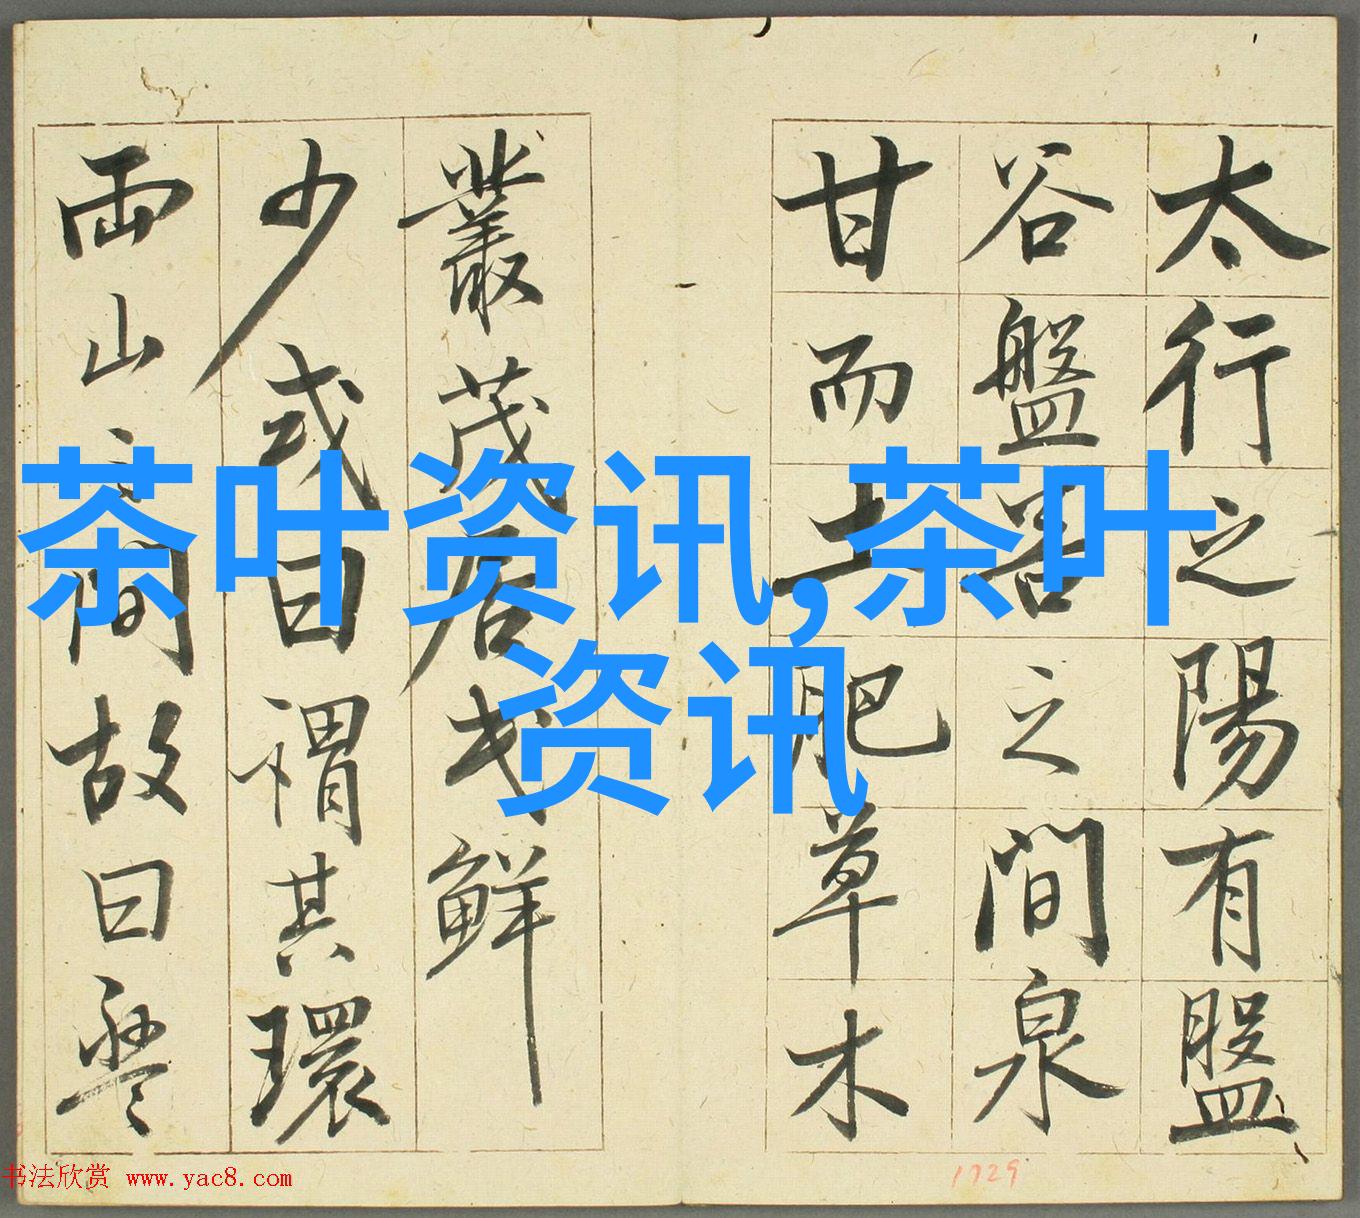 太行之陽有盤
谷盤谷之間泉
甘而土肥草木
叢茂居民鮮
少或曰謂其環
兩山之間故曰盤
茶叶资讯,茶叶
资讯
书法欣赏 www.yac8.com
1729